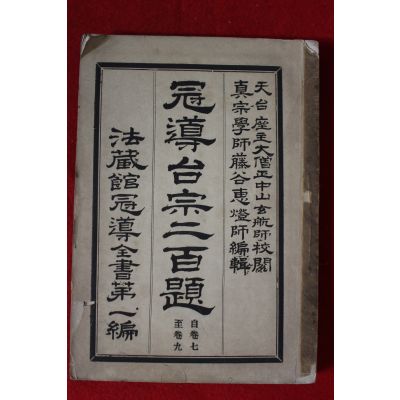 天台座主大僧正中山玄航師校閲
真宗學師藤谷惠燈師編輯
冠導台宗二百題
自卷七
至卷九
法藏館冠導全書第一編